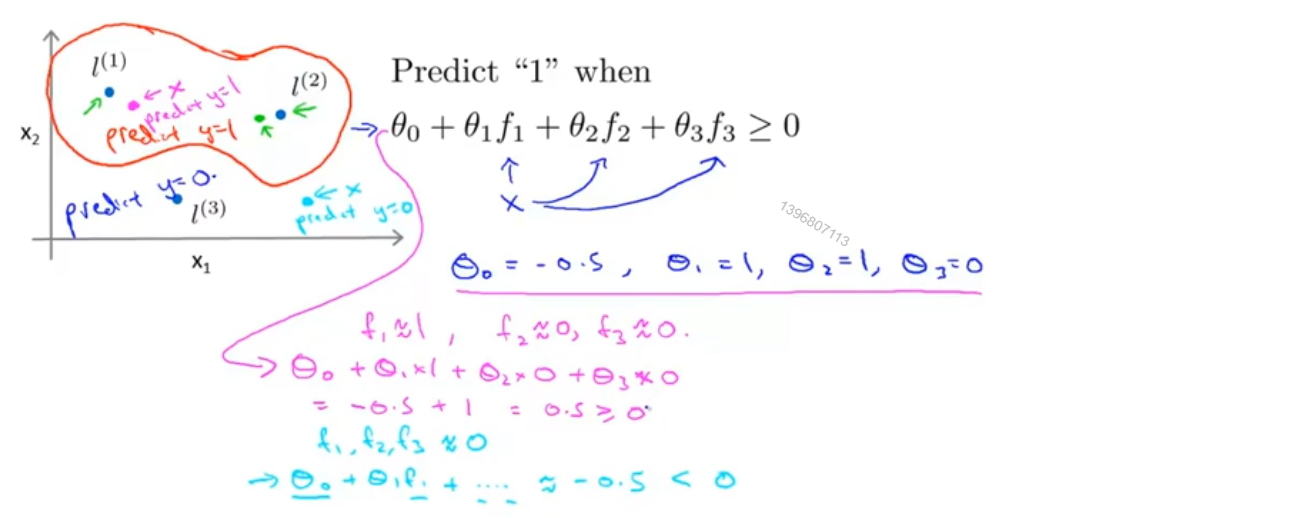 l^(1)
l^(2)
← x
predict y=1
predict y=1
x₂
predict y=0.
l^(3)
← x
predict y=0
x₁
Predict “1” when
→ θ₀ + θ₁f₁ + θ₂f₂ + θ₃f₃ ≥ 0
x
1396807113
θ₀ = -0.5, θ₁=1, θ₂=1, θ₃=0
f₁≈1, f₂≈0, f₃≈0.
→ θ₀ + θ₁×1 + θ₂×0 + θ₃×0
= -0.5 + 1 = 0.5 ≥ 0
f₁, f₂, f₃ ≈ 0
→ θ₀ + θ₁f₁ + .... ≈ -0.5 < 0